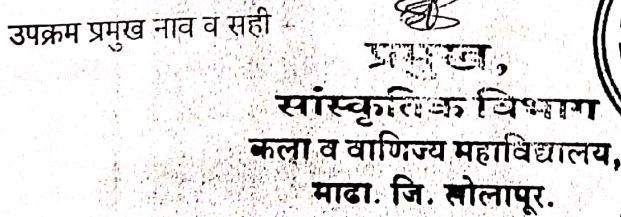 उपक्रम प्रमुख नाव व सही
प्रमुख,
सांस्कृतिक विभाग
कला व वाणिज्य महाविद्यालय,
माढा. जि. सोलापूर.